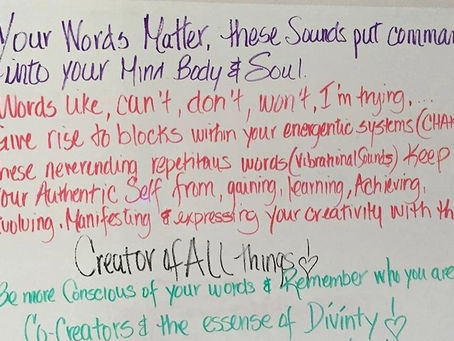 Your Words Matter, these Sounds put comman
into your Mind Body & Soul.
Words like, can't, don't, won't, I'm trying,....
Give rise to blocks within your energentic systems (CHA
hese neverending repetitous words (Vibrational Sounds) Keep
Your Authentic Self from, gaining, learning, Achieving,
Evolving. Manifesting & expressing your creativity with th
Creator of ALL things
Be more Conscious of your words & Remember who you are
Co-Creators & the essense of Divinty